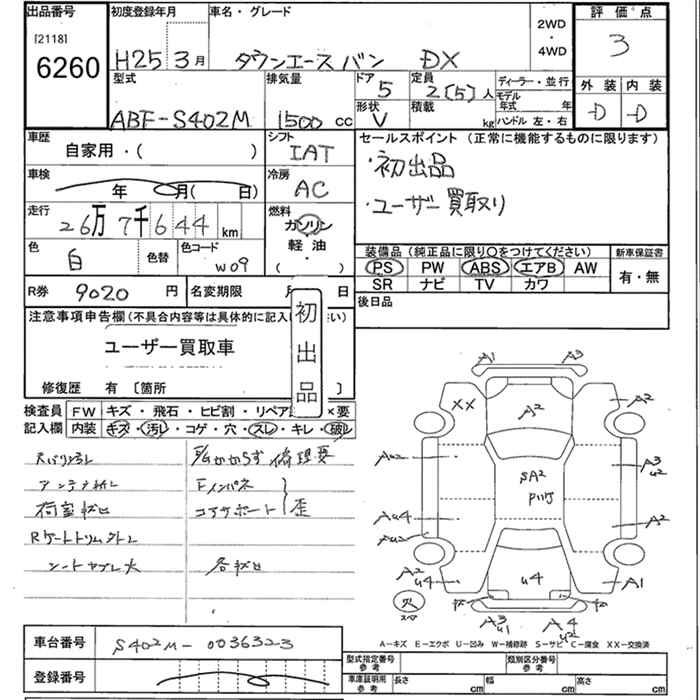 出品番号
[2118]
6260
初度登録年月
H25 3月
車名・グレード
タウンエースバン DX
2WD
・
4WD
評価点
3
型式
ABF-S402M
排気量
1500 cc
ドア
5
定員
2(5)人
形状
V
積載
kg
ディーラー・並行
モデル年式 年
ハンドル 左・右
外装 内装
D D
車歴
自家用・( )
シフト
IAT
セールスポイント (正常に機能するものに限ります)
・初出品
・ユーザー買取り
車検
年 月( 日)
冷房
AC
走行
26万7千644 km
燃料
ガソリン
軽油
( )
色
白
色替
色コード
W09
装備品(純正品に限り○をつけてください)
PS PW ABS エアB AW
SR ナビ TV カワ
新車保証書
有・無
R券 9020 円
名変期限 月 日
後日品
注意事項申告欄(不具合内容等は具体的に記入 さい)
ユーザー買取車
初出品
修復歴 有 〔箇所 〕
検査員
記入欄
FW キズ・飛石・ヒビ割・リペア ×要
内装 キズ・汚レ・コゲ・穴・スレ・キレ・破レ
アンテナ
Fインパネ
コアサポート 歪
荷室
A1
A3
XX
A2
A2
A3
U2
SA2
Au4
A2
A2
U4
U4
A1
穴
スペア
A3
U1
A4
U2
A-キズ E-エクボ U-凹み W-補修跡 S-サビ C-腐食 XX-交換済
車台番号 S402M-0036323
登録番号
型式指定番号
参考
類別区分番号
参考
車庫証明用
参考
長さ cm 幅 cm 高さ cm